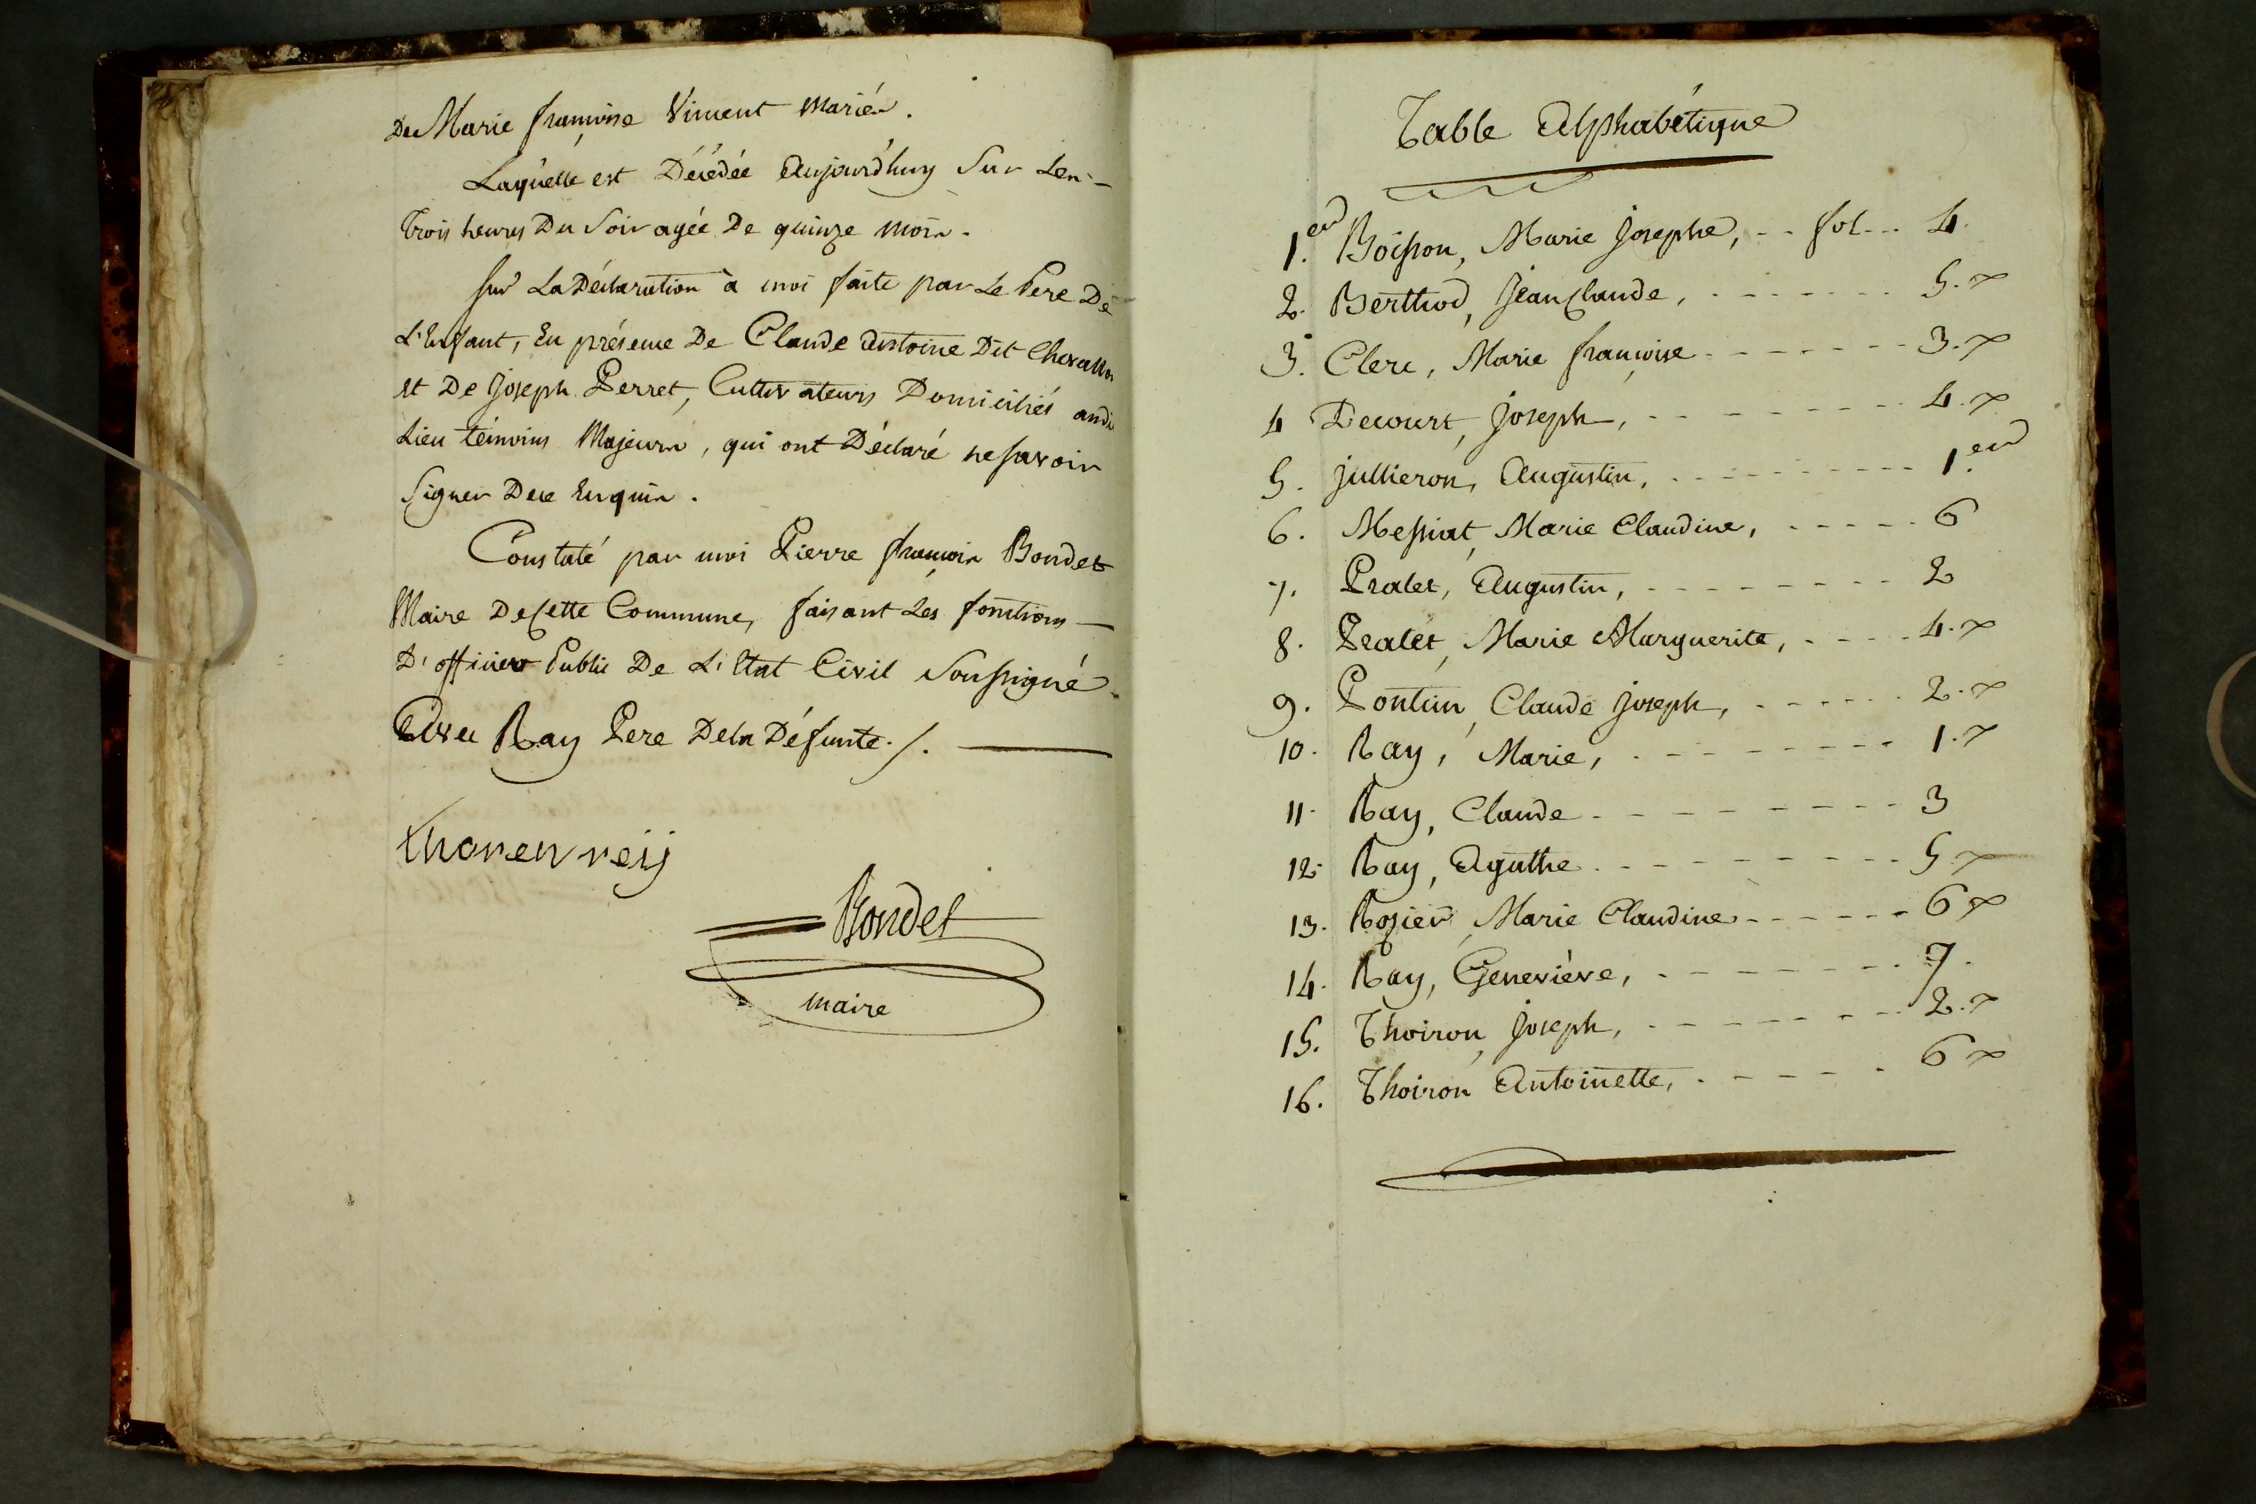 De Marie françoise Vincent Mariés.
Laquelle est Décédée Aujourd'huy Sur Les
Trois heures Du Soir agée De quinze mois.
Sur La Déclaration à moi faite par Le Pere De
L'Enfant, En présence De Claude Antoine Dit Chevallon
et De Joseph Perret, Cultivateurs Domiciliés audit
Lieu témoins Majeurs, qui ont Déclaré ne savoir
Signer De ce Enquis.
Constaté par moi Pierre françois Bondet
Maire De Cette Commune, faisant Les fonctions
D'officier Public De L'Etat Civil Soussigné
Avec Ray Pere De la Défunte ./.
Bondet
maire
Table Alphabétique
1.er Boisson, Marie Josephe, fol 4.
2. Berthod, Jean Claude, 5.
3. Clerc, Marie françoise 3.
4 Decourt, Joseph, 4.
5. Jullieron, Augustin, 1.er
6. Messiat, Marie Claudine, 6
7. Pralet, Augustin, 2
8. Pralet, Marie Marguerite, 4.
9. Pontun, Claude Joseph, 2.
10. Ray, Marie, 1.
11. Ray, Claude 3
12. Ray, Agathe 5
13. Rozier, Marie Claudine 6
14. Ray, Geneviève, 7.
15. Thoiron, Joseph, 2.
16. Thoiron Antoinette, 6